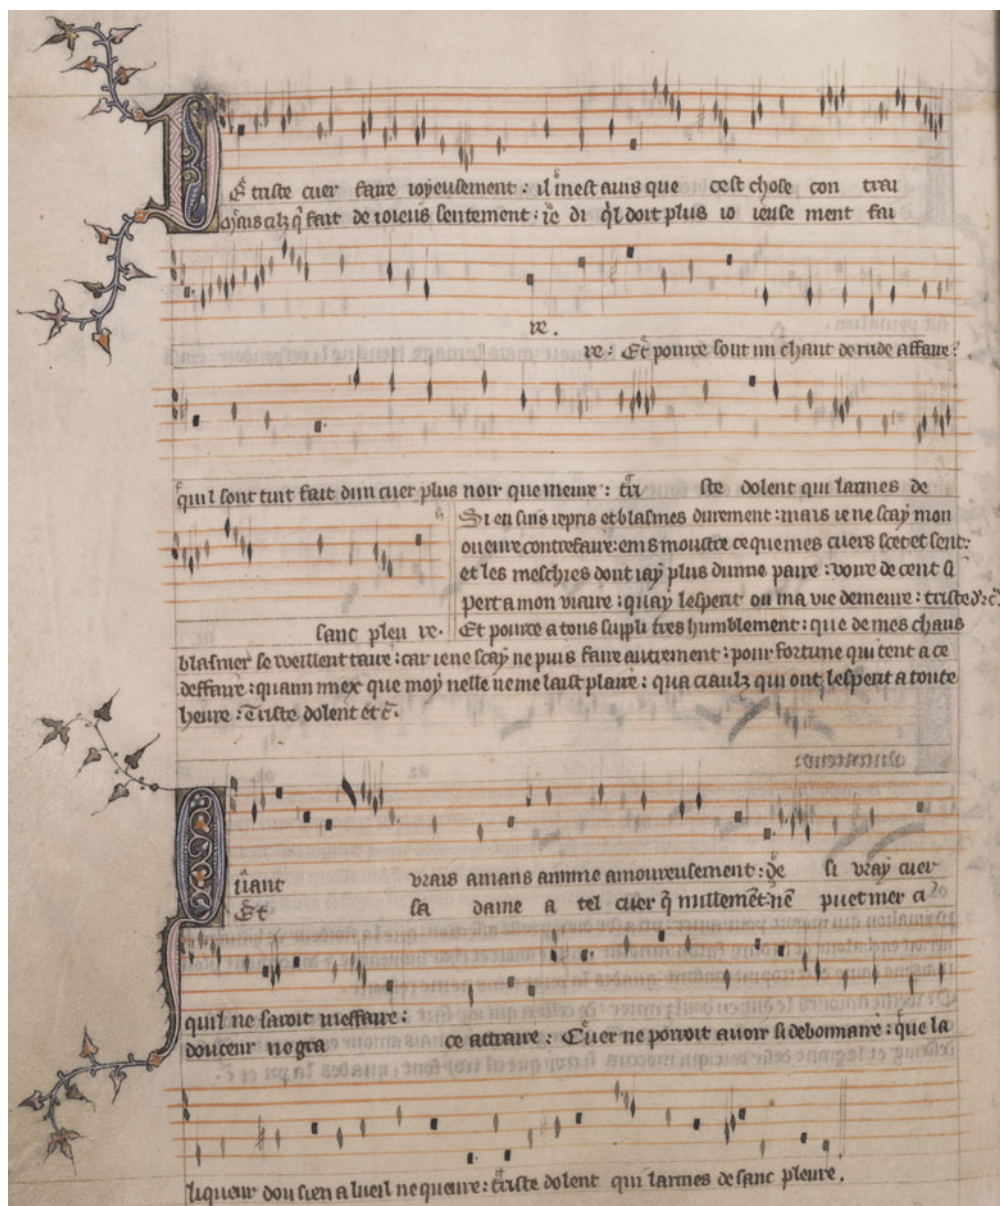 De triste cuer faire ioyeusement : il mest auis que cest chose con trai
Mais cilz q̃ fait de ioieus sentement : ie di q̃l doit plus io ieuse ment fai
re .
re : Et pource sont mi chant de rude affaire :
quil sont tuit fait dun cuer plus noir que meure : tri ste dolent qui larmes de
Si en suis repris et blasmes durement : mais ie ne scay mon
oueure contrefaire : eins moustre ce que mes cuers scet et sent :
et les meschies dont iay plus dunne paire : voire de cent si
pert a mon viaire : quay lesperit ou ma vie demeure : triste d
sanc pleu re .
Et pource a tous suppli tres humblement : que de mes chans
blasmer se veillent taire : car ie ne scay ne puis faire autrement : pour fortune qui tent a ce
deffaire : quaim miex que moy nelle ne me laist plaire : qua ciaulz qui ont lesperit a toute
heure : Triste dolent et c̃ .
Quant vrais amans aimme amoureusement : de si vray cuer
Et sa dame a tel cuer q̃ nullemẽt : nẽ puet mer ci
quil ne saroit meffaire :
douceur ne gra ce attraire : Cuer ne porroit auoir si debonnaire : que la
liqueur dou sien a lueil ne queure : triste dolent qui larmes de sanc pleure .